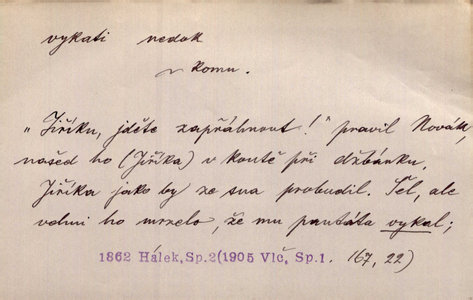 vykati nedok
~ komu.
„Jiříku, jděte zapřáhnout!" pravil Novák,
našed ho (Jiříka) v koutě při džbánku.
Jiříka jako by ze sna probudil. Šel, ale
velmi ho mrzelo, že mu pantáta vykal;
1862 Hálek, Sp.2(1905 Vlč, Sp.1. 167, 22)